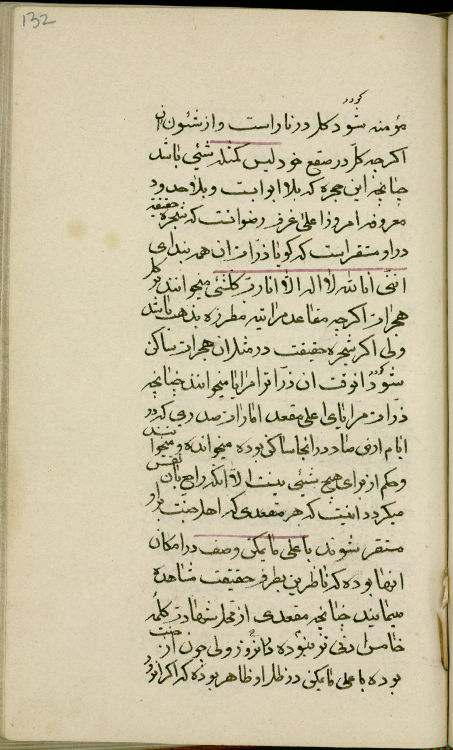 132
گردد
مؤمنه شود کل در نار است و از شئون آن
اگرچه کل در صقع خود لیس کمثله شیئی باشد
چنانچه این حجره که بلا ابوابست و بلا حدود
معروفه امروز اعلی غرف رضوانست که شجره حقیقة
در او مستقر است که گویا ذرات آن همه بندای
اننی انا الله لا اله الا انا رب کلشیئی میخوانند بر کل
حجرات اگرچه مقاعد مراتیه مطرزه بذهب باشد
ولی اگر شجره حقیقت در مثل آن حجرات ساکن
شود آنوقت آن ذرات مرایا میخوانند چنانچه
ذرات مرایای اعلی مقعد امارات صدری که در
ایام ارض صاد در آنجا ساکن بوده میخوانده و میخوانند
و حکم از برای هیچ شیئی نیست الا آنکه راجع بآن نفس
میگردد اینست که هر مقعدی که اهل جنت بر او
مستقر شوند باعلی ما یمکن وصف در امکان
آنها بوده که ناظرین بطرف حقیقت مشاهده
مینمایند چنانچه مقعدی از محل شهادت کلمهٔ
خامس ادنی تر نبوده در آنروز ولی چون از جنت
بوده باعلی ما یمکن در ظل او ظاهر بوده که اگر آنروز